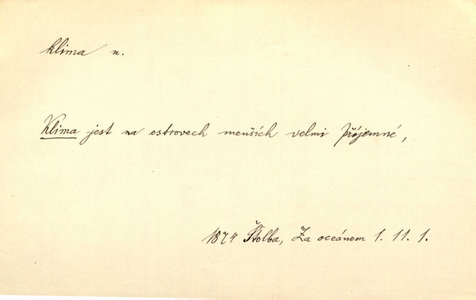 klima n.
Klima jest na ostrovech menších velmi příjemné,
1874 Štolba, Za oceánem 1. 11. 1.